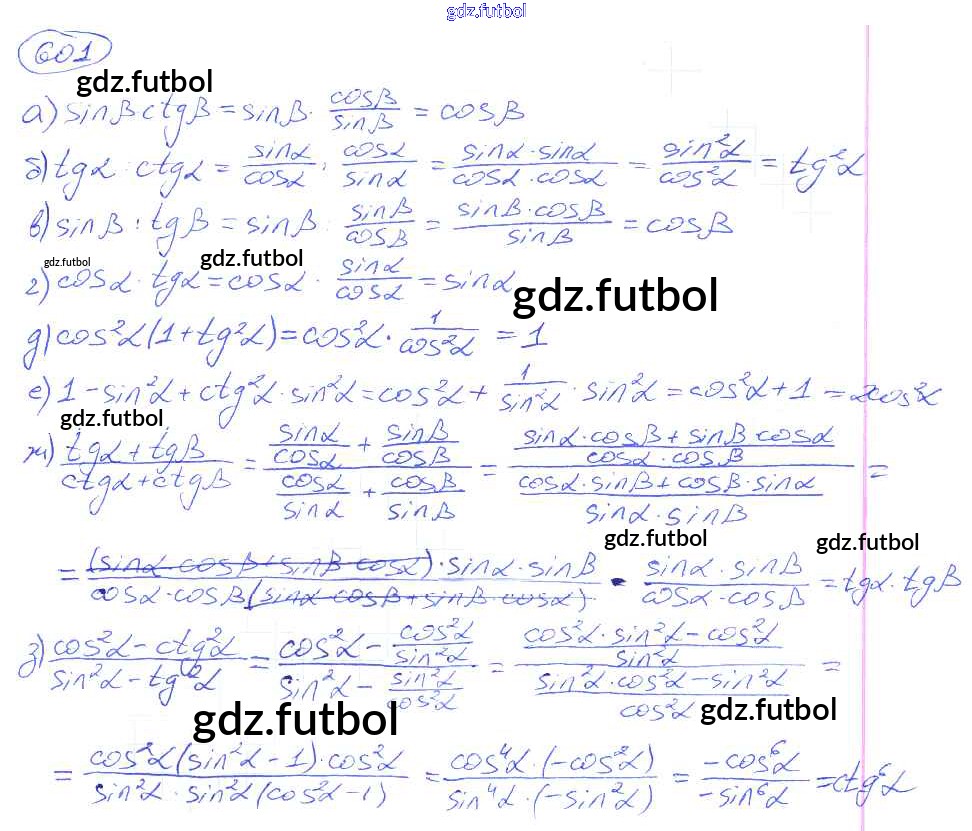 gdz.futbol
601
gdz.futbol
а) sinβ·ctgβ = sinβ · cosβ/sinβ = cosβ
б) tgα : ctgα = sinα/cosα : cosα/sinα = (sinα · sinα)/(cosα · cosα) = sin²α/cos²α = tg²α
в) sinβ : tgβ = sinβ : sinβ/cosβ = (sinβ · cosβ)/sinβ = cosβ
gdz.futbol gdz.futbol
г) cosα · tgα = cosα · sinα/cosα = sinα
gdz.futbol
д) cos²α(1 + tg²α) = cos²α · 1/cos²α = 1
е) 1 - sin²α + ctg²α · sin²α = cos²α + 1/sin²α · sin²α = cos²α + 1 = 2cos²α
gdz.futbol
ж) (tgα + tgβ)/(ctgα + ctgβ) = (sinα/cosα + sinβ/cosβ)/(cosα/sinα + cosβ/sinβ) = ((sinα · cosβ + sinβ · cosα)/(cosα · cosβ))/((cosα · sinβ + cosβ · sinα)/(sinα · sinβ)) =
gdz.futbol gdz.futbol
= ((sinα · cosβ + sinβ · cosα) · sinα · sinβ)/(cosα · cosβ(sinα · cosβ + sinβ · cosα)) · (sinα · sinβ)/(cosα · cosβ) = tgα · tgβ
з) (cos²α - ctg²α)/(sin²α - tg²α) = (cos²α - cos²α/sin²α)/(sin²α - sin²α/cos²α) = ((cos²α · sin²α - cos²α)/sin²α)/((sin²α · cos²α - sin²α)/cos²α) =
gdz.futbol gdz.futbol
= (cos²α(sin²α - 1) · cos²α)/(sin²α · sin²α(cos²α - 1)) = (cos⁴α · (-cos²α))/(sin⁴α · (-sin²α)) = -cos⁶α/-sin⁶α = ctg⁶α